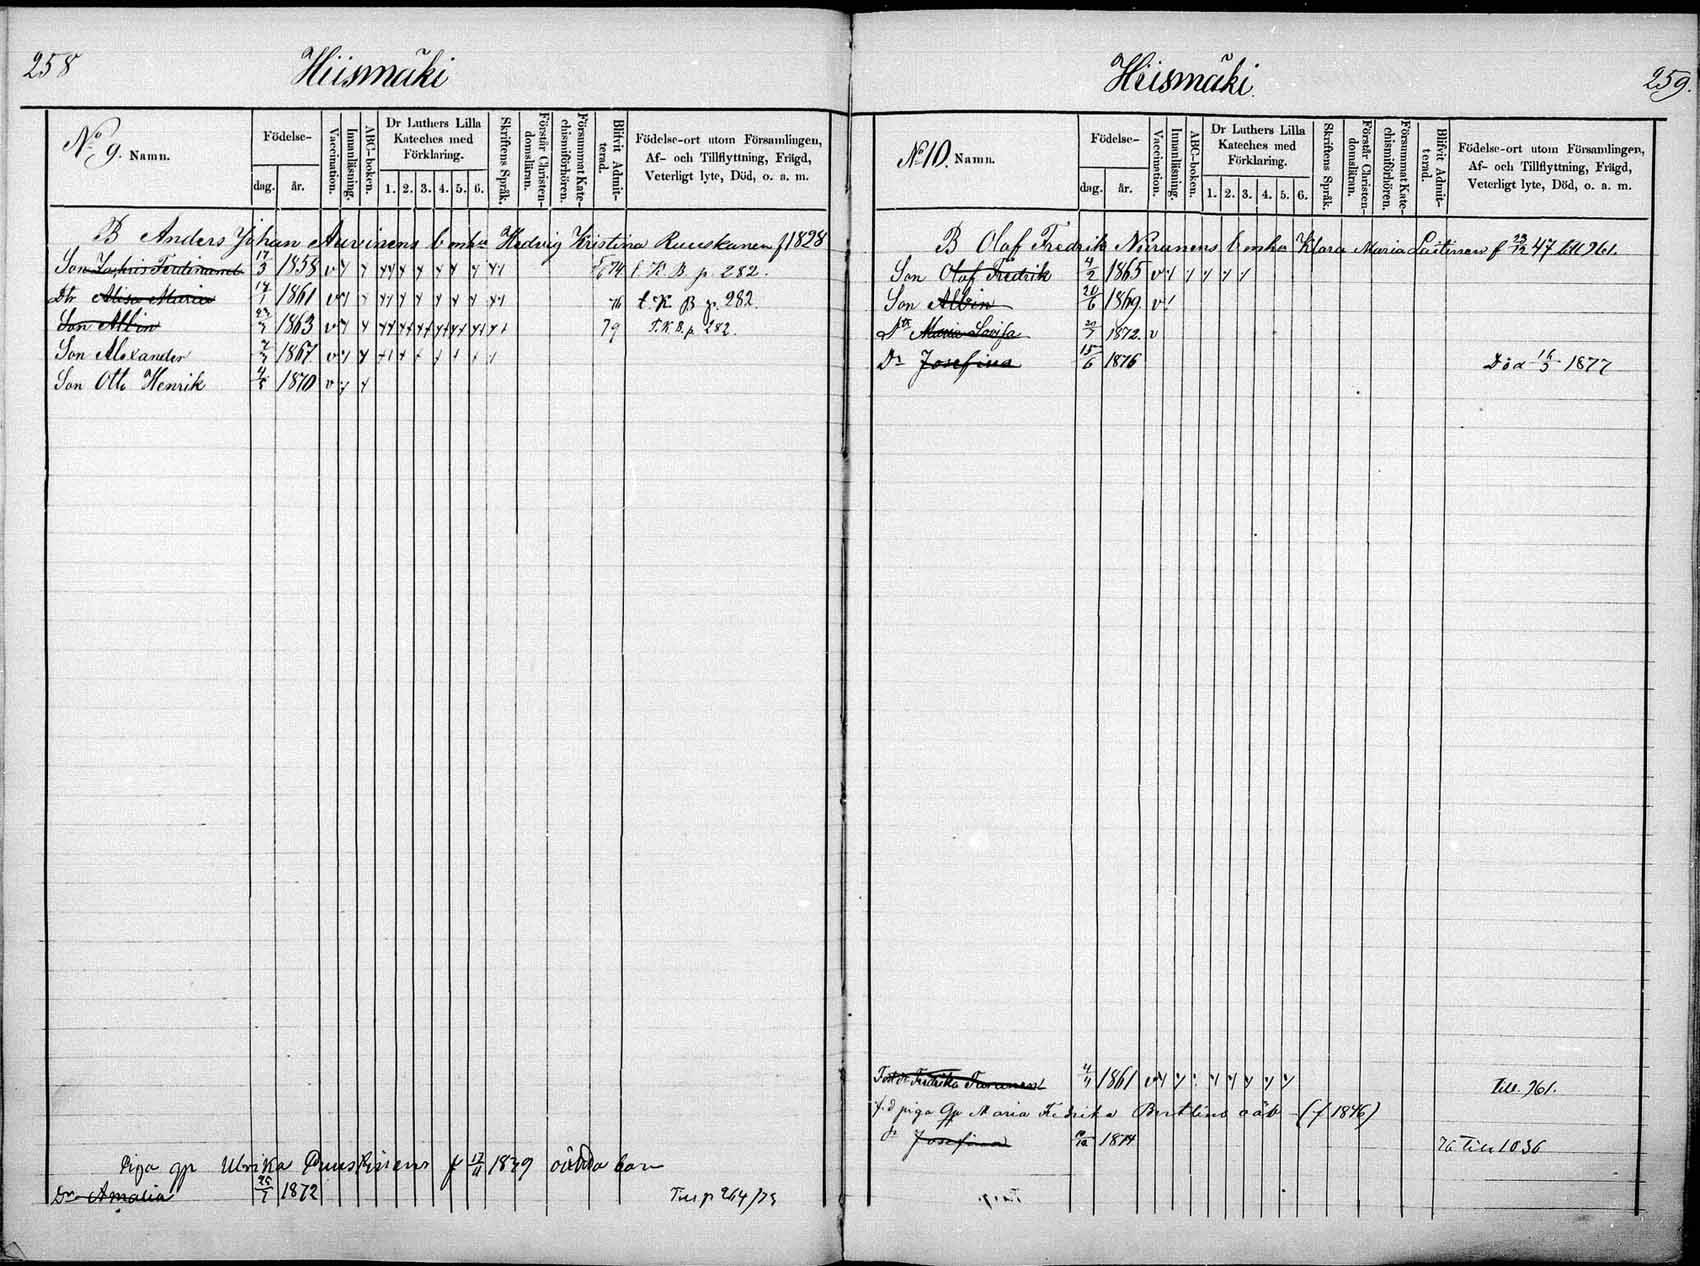 258
Hiismäki
No 9. Namn.
Födelse-
dag. år.
Vaccination.
Innanläsning.
ABC-boken.
Dr Luthers Lilla
Kateches med
Förklaring.
1. 2. 3. 4. 5. 6.
Skriftens Språk.
Förstår Christen-
domsläran.
Försummat Kate-
chismiförhören.
Blifvit Admit-
terad.
Födelse-ort utom Församlingen,
Af- och Tillflyttning, Frägd,
Veterligt lyte, Död, o. a. m.
B Anders Johan Auvinens b Hedvig Kristina Ruuskanen f 1828
Son Ferdinand 17/3 1858 v 74 t. K. B. p. 282.
Dtr Alisa Maria 17/1 1861 v 76 t. K. B. p. 282.
Son Albin 1863 v 79 T.K.B. p. 282.
Son Alexander 1867 v
Son Otto Henrik 4/5 1870 v
Piga gp Ulrika f 17/11 1849 barn
Dr Amalia 1872 p 264/79
Hiismäki
259.
No 10. Namn.
Födelse-
dag. år.
Vaccination.
Innanläsning.
ABC-boken.
Dr Luthers Lilla
Kateches med
Förklaring.
1. 2. 3. 4. 5. 6.
Skriftens Språk.
Förstår Christen-
domsläran.
Försummat Kate-
chismiförhören.
Blifvit Admit-
terad.
Födelse-ort utom Församlingen,
Af- och Tillflyttning, Frägd,
Veterligt lyte, Död, o. a. m.
B Olof Fredrik b Klara Maria f 47 till 961.
Son Olof Fredrik 4/2 1865 v
Son Albin 20/6 1869 v
Dtr Maria Lovisa 1872. v
Dr Josefina 15/6 1876 Död 16/5 1877
Fredrika Turunen 4/4 1861 v Till. 961.
f.d piga gp Maria Fredrika (f 1846)
dr Josefina 1874 76 Till 1036